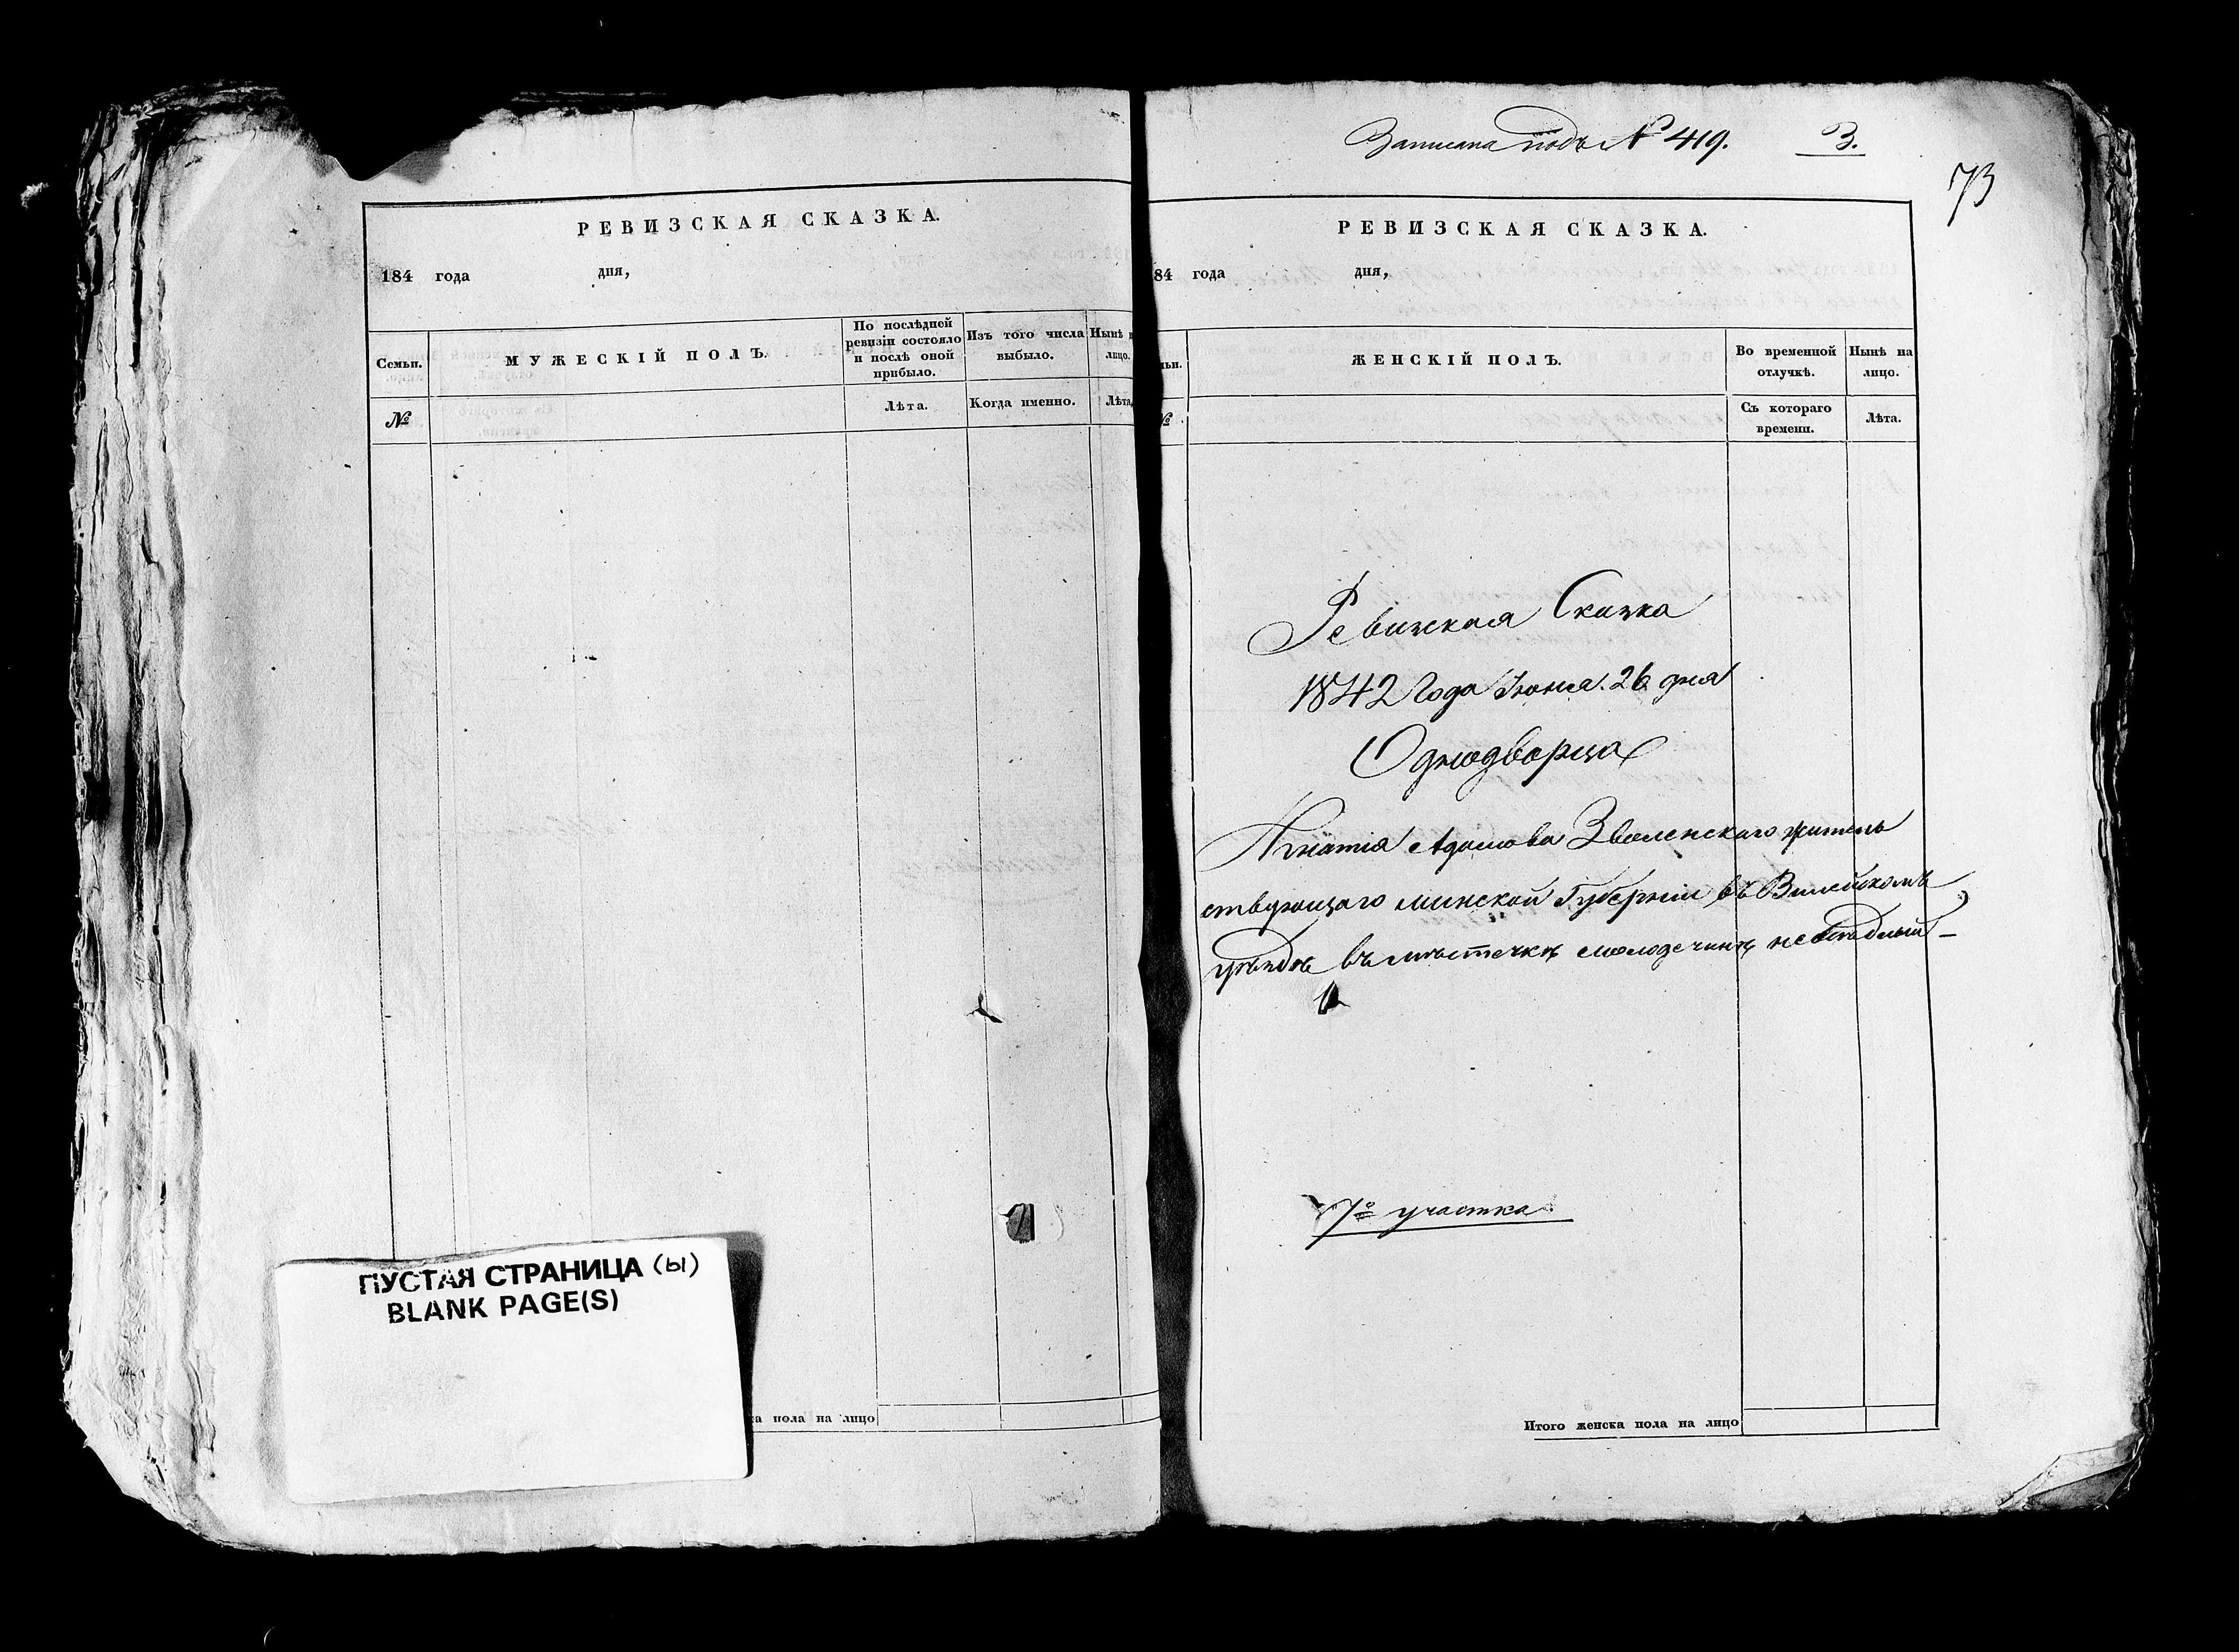 РЕВИЗСКАЯ СКАЗКА.
184 года дня,
Семьи. МУЖЕСКІЙ ПОЛЪ. По послѣдней ревизіи состояло и послѣ оной прибыло. Изъ того числа выбыло. Нынѣ лицо.
№ Лѣта. Когда именно. Лѣта
ПУСТАЯ СТРАНИЦА (ы)
BLANK PAGE(S)
ка пола на лицо
Записана подъ № 419. 3.
73
РЕВИЗСКАЯ СКАЗКА.
84 года дня,
ьи. ЖЕНСКІЙ ПОЛЪ. Во временной отлучкѣ. Нынѣ на лицо.
№ Съ котораго времени. Лѣта.
Ревизская Сказка
1842 Года Іюня. 26 дня
Однодворца
Игнатія Адамова Зволенскаго житель
ствующаго минской Губерніи въ Вилейскомъ
уѣздѣ въ мѣстечкѣ молодечинѣ
7º участка
Итого женска пола на лицо